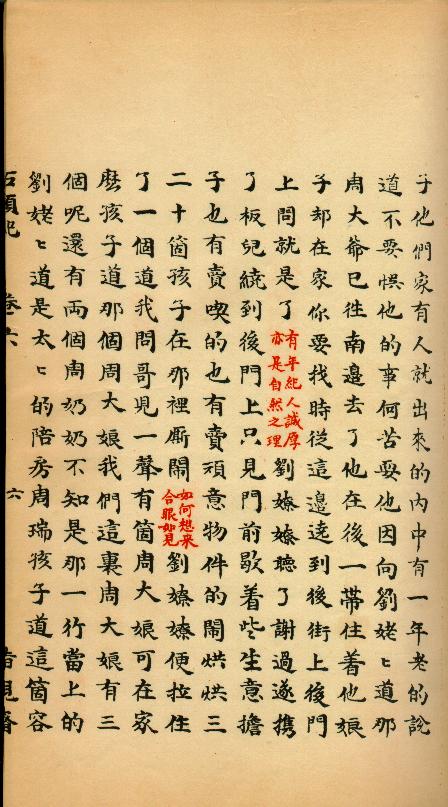 子他們家有人就出來的內中有一年老的說
道不要悞他的事何苦耍他因向劉姥〻道那
周大爺已徃南邊去了他在後一帶住着他娘
子却在家你要找時從這邊遶到後街上後門
上問就是了有年紀人誠厚亦是自然之理劉嫽嫽聽了謝過遂携
了板兒繞到後門上只見門前歇着些生意擔
子也有賣喫的也有賣頑意物件的鬧烘烘三
二十箇孩子在那裡厮鬧如何想來合眼如見劉嫽嫽便拉住
了一個道我問哥児一聲有箇周大娘可在家
麽孩子道那個周大娘我們這裏周大娘有三
個呢還有両個周奶奶不知是那一行當上的
劉姥〻道是太〻的陪房周瑞孩子道這箇容
石頭記 卷六 六